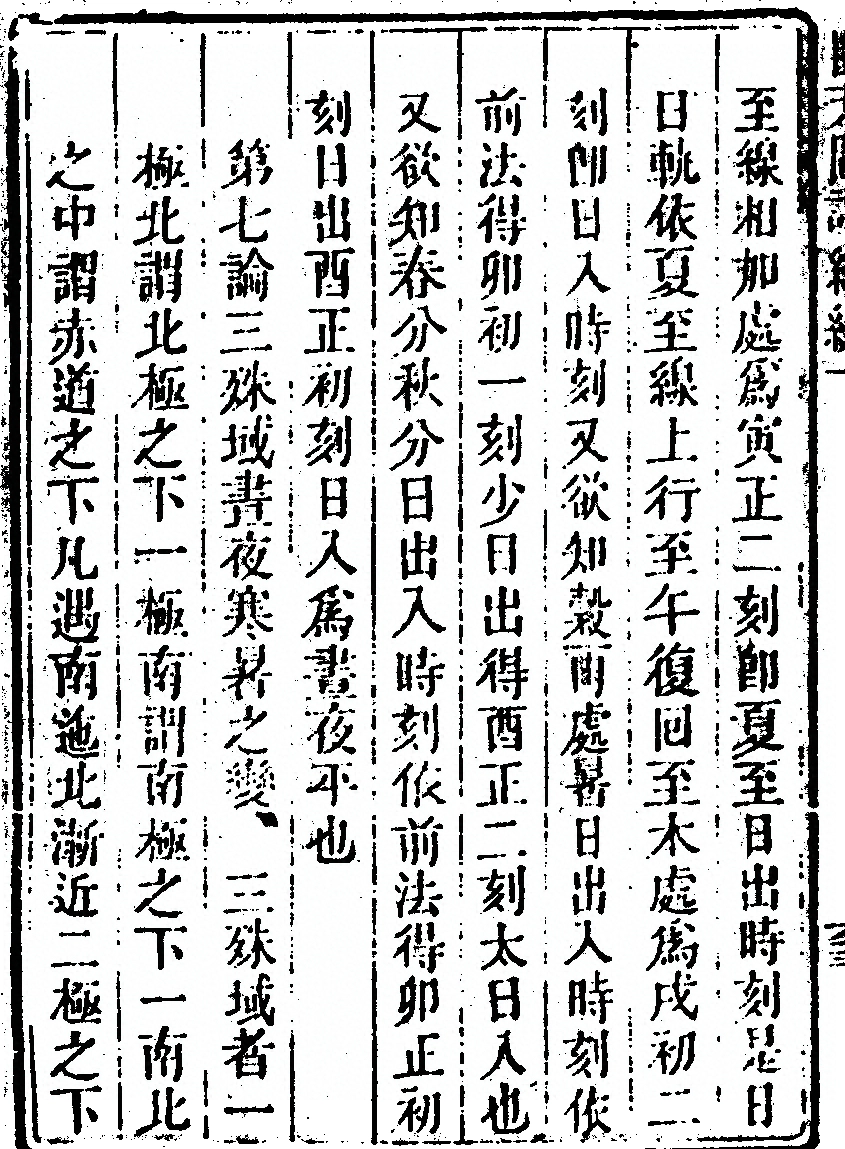 至線相如處爲寅正二刻卽夏至日出時刻是日
日軌依夏至線上行至午復回至木處爲戌初二
刻卽日入時刻又欲知穀雨處暑日出入時刻依
前法得卯初一刻少日出得酉正二刻太日入也
又欲知春分秋分日出入時刻依前法得卯正初
刻日出酉正初刻日入爲晝夜平也
第七論三殊域晝夜寒暑之變、三殊域者一
極北謂北極之下一極南謂南極之下一南北
之中謂赤道之下凡過南迤北漸近二極之下